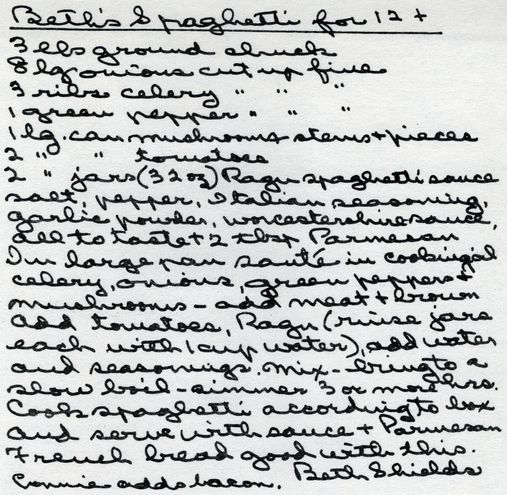 Beth's Spaghetti for 12 +
3 lbs ground chuck
8 lg onions cut up fine
3 ribs celery " " "
1 green pepper " " "
1 lg. can mushrooms stems + pieces
2 " " tomatoes
2 " jars (32 oz) Ragu spaghetti sauce
salt, pepper, Italian seasoning,
garlic powder, worcestershire sauce,
all to taste + 2 tbsp Parmesan
In large pan sauté in cooking oil
celery, onions, green peppers +
mushrooms - add meat + brown
add tomatoes, Ragu (rinse jars
each with 1 cup water), add water
and seasonings. mix - bring to a
slow boil - simmer 3 or more hrs.
Cook spaghetti according to box
and serve with sauce + Parmesan
French bread good with this.
Connie adds bacon. Beth Shields